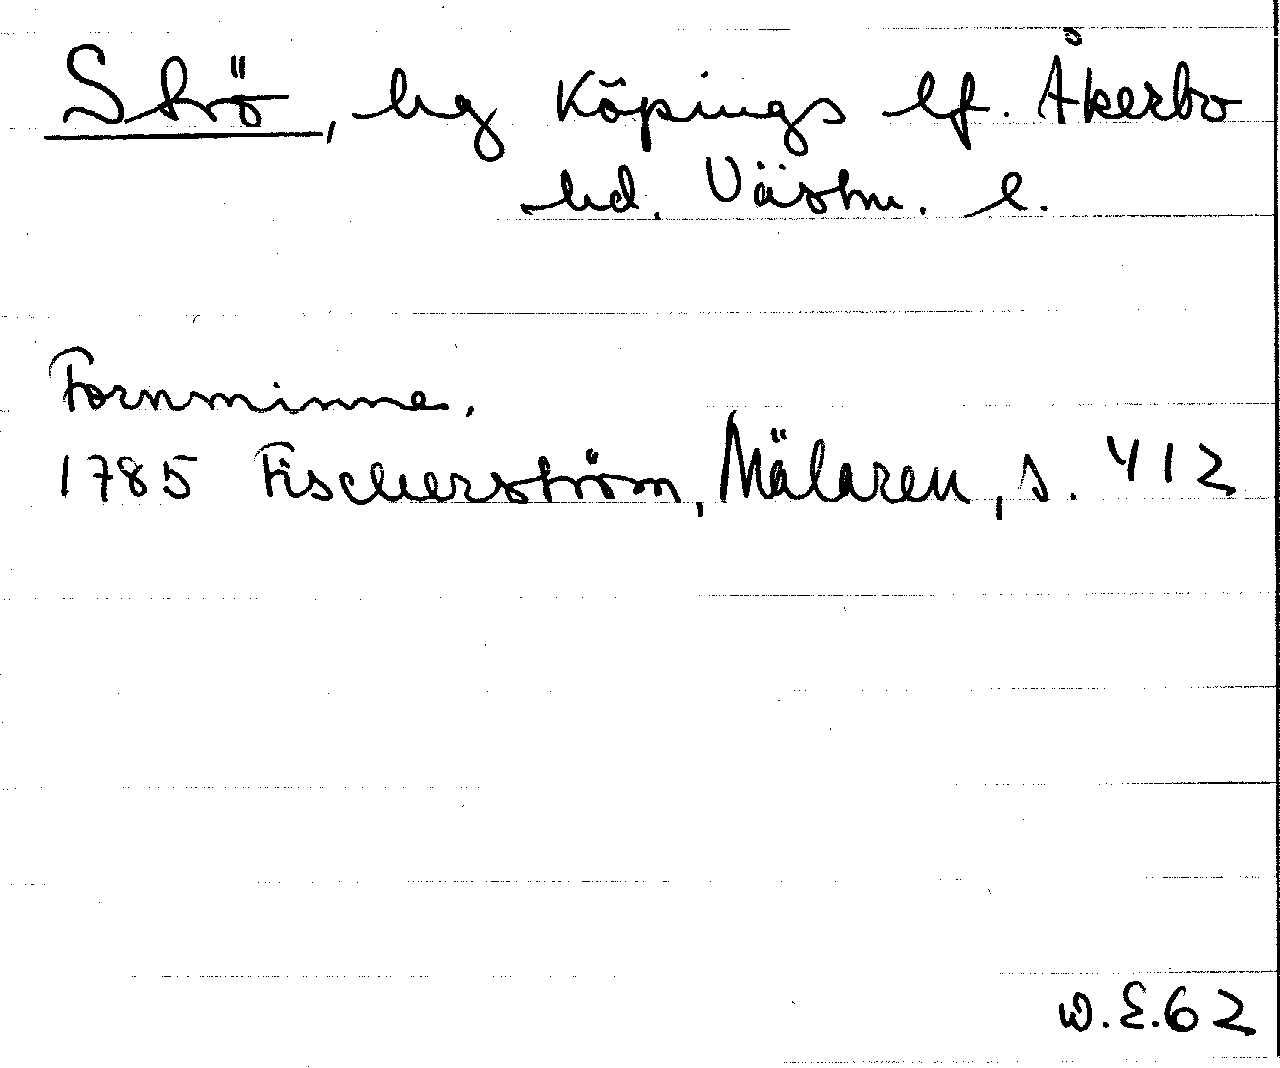 Strö, hg Köpings lf. Åkerbo
hd. Västm. l.
Fornminne.
1785 Fischerström, Mälaren, s. 412
W.E.62